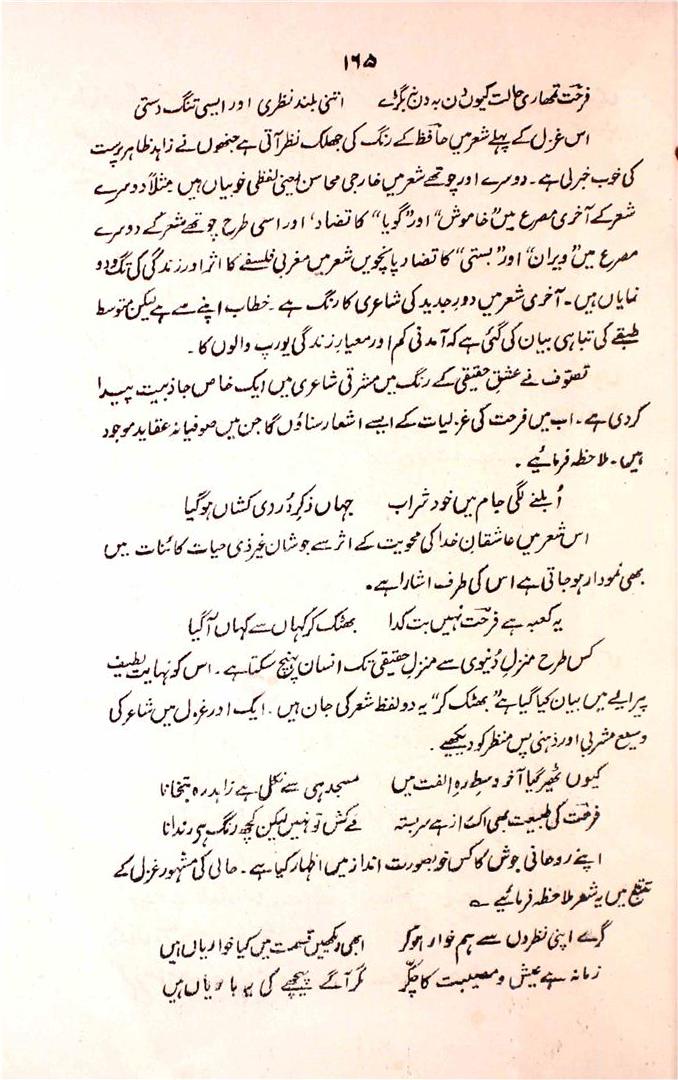 ۱۶۵
فرحت تمھاری حالت کیوں دن بہ دن بگڑے اتنی بلند نظری اور ایسی تنگ دستی
اس غزل کے پہلے شعر میں حافظ کے رنگ کی جھلک نظر آتی ہے جنھوں نے زاہد ظاہر پرست
کی خوب خبر لی ہے۔ دوسرے اور چوتھے شعر میں خارجی محاسن یعنی لفظی خوبیاں ہیں مثلاً دوسرے
شعر کے آخری مصرع میں "خاموش" اور "گویا" کا تضاد، اور اسی طرح چوتھے شعر کے دوسرے
مصرع میں "ویران" اور "بستی" کا تضاد پانچویں شعر میں مغربی فلسفے کا اثر اور زندگی کی تگ و دو
نمایاں ہیں۔ آخری شعر میں دورِ جدید کی شاعری کا رنگ ہے۔ خطاب اپنے سے ہے لیکن متوسط
طبقے کی تباہی بیان کی گئی ہے کہ آمدنی کم اور معیارِ زندگی یورپ والوں کا۔
تصوّف نے عشقِ حقیقی کے رنگ میں مشرقی شاعری میں ایک خاص جاذبیت پیدا
کر دی ہے۔ اب میں فرحت کی غزلیات کے ایسے اشعار سناؤں گا جن میں صوفیانہ عقاید موجود
ہیں۔ ملاحظہ فرمائیے۔
اُبلنے لگی جام میں خود شراب جہاں ذکرِ دُردی کشاں ہو گیا
اس شعر میں عاشقانِ خدا کی محویت کے اثر سے جو شان غیر ذی حیات کائنات میں
بھی نمودار ہو جاتی ہے اس کی طرف اشارا ہے۔
یہ کعبہ ہے فرحت نہیں بت کدا بھٹک کر کہاں سے کہاں آ گیا
کس طرح منزلِ دُنیوی سے منزلِ حقیقی تک انسان پہنچ سکتا ہے۔ اس کو نہایت لطیف
پیرایے میں بیان کیا گیا ہے "بھٹک کر" یہ دو لفظ شعر کی جان ہیں۔ ایک اور غزل میں شاعر کی
وسیع مشربی اور ذہنی پس منظر کو دیکھیے۔
کیوں ٹھہر گیا آخر وسطِ رہِ الفت میں مسجد ہی سے نکلی ہے زاہد رہِ بتخانا
فرحت کی طبیعت بھی اک راز ہے سربستہ مے کش تو نہیں لیکن کچھ رنگ ہی رندانا
اپنے روحانی جوش کا کس خوبصورت انداز میں اظہار کیا ہے۔ حالی کی مشہور غزل کے
تتبع میں یہ شعر ملاحظہ فرمائیے۔
گرے اپنی نظروں سے ہم خوار ہو کر ابھی دیکھیں قسمت میں کیا خواریاں ہیں
زمانہ ہے عیش و مصیبت کا چکّر مگر آگے پیچھے کی یہ باریاں ہیں